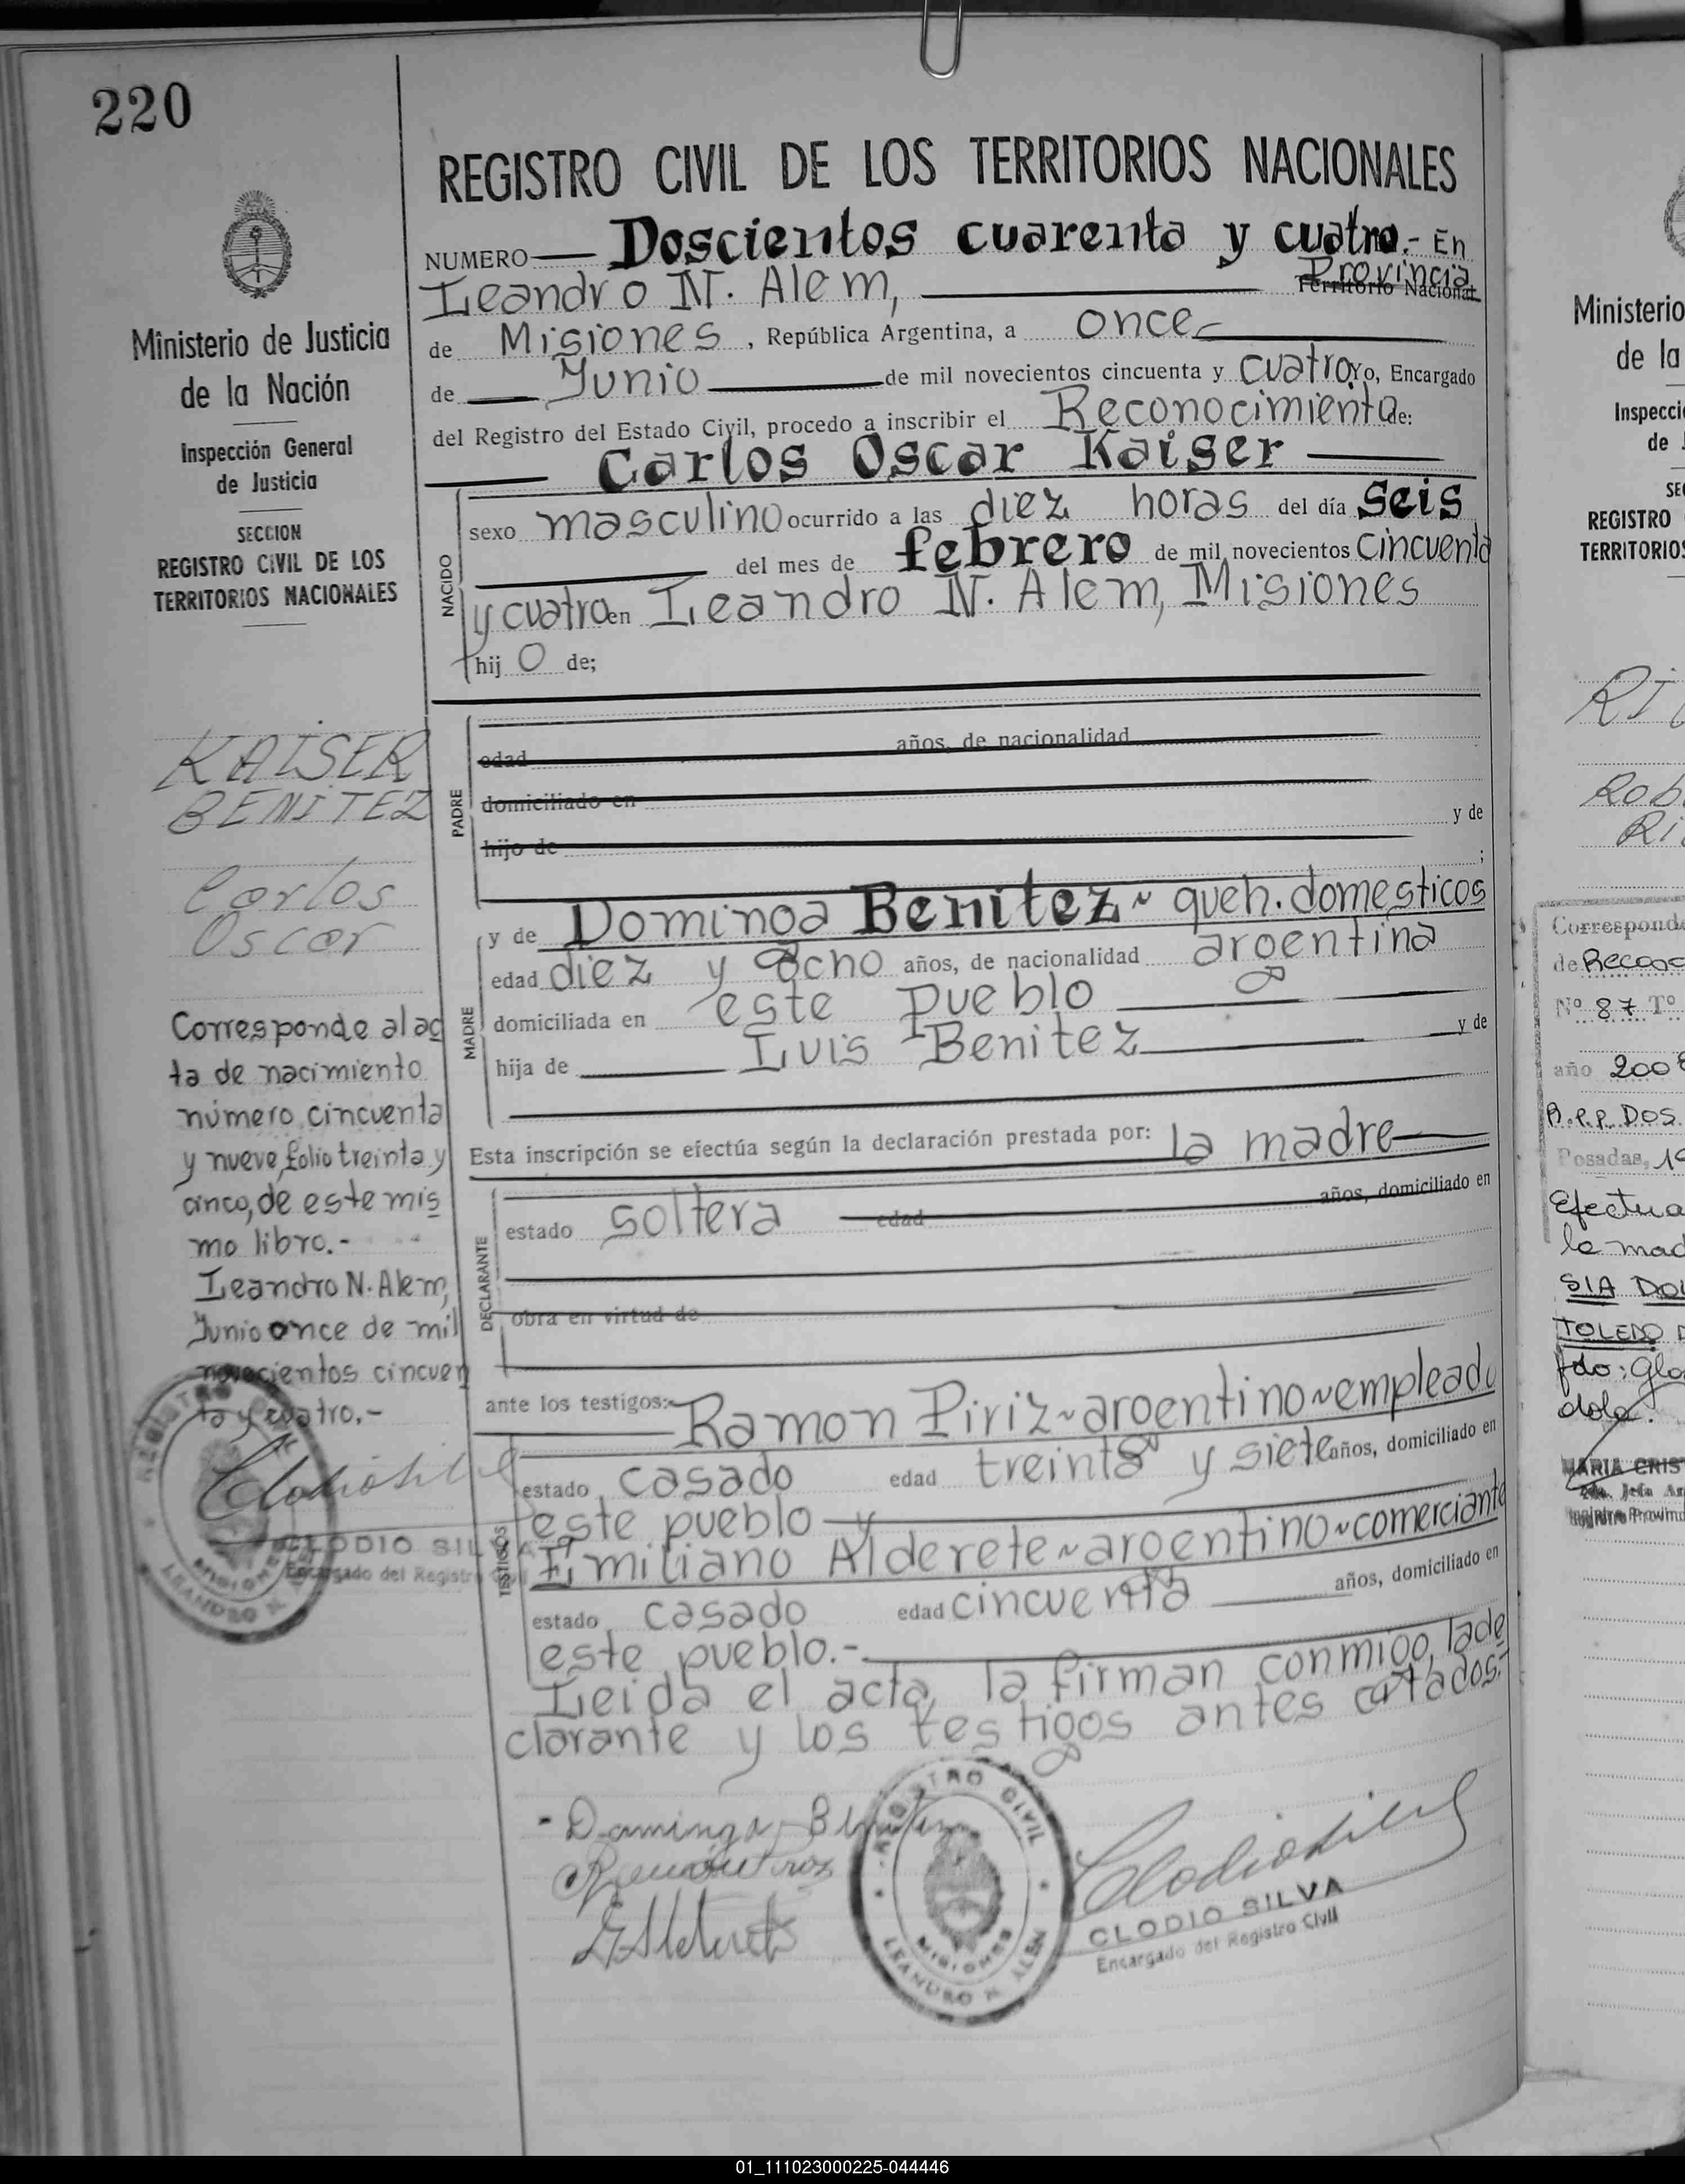 220
REGISTRO CIVIL DE LOS TERRITORIOS NACIONALES
NUMERO Doscientos cuarenta y cuatro.- En
Leandro N. Alem, Provincia
Territorio Nacional
de Misiones, República Argentina, a once
de Junio de mil novecientos cincuenta y cuatro Yo, Encargado
del Registro del Estado Civil, procedo a inscribir el Reconocimiento de:
Carlos Oscar Kaiser
NACIDO
sexo masculino ocurrido a las diez horas del día seis
del mes de febrero de mil novecientos cincuenta
y cuatro en Leandro N. Alem, Misiones
hij o de;
PADRE
edad años, de nacionalidad
domiciliado en
y de
hijo de
;
MADRE
y de Dominga Benitez ~ queh. domesticos
edad diez y ocho años, de nacionalidad argentina
domiciliada en este pueblo
hija de Luis Benitez y de
Esta inscripción se efectúa según la declaración prestada por: la madre
DECLARANTE
estado soltera edad años, domiciliado en
obra en virtud de
ante los testigos: Ramon Piriz ~ argentino ~ empleado
TESTIGOS
estado casado edad treinta y siete años, domiciliado en
este pueblo y
Emiliano Alderete ~ argentino ~ comerciante
estado casado edad cincuenta años, domiciliado en
este pueblo.-
Leida el acta, la firman conmigo, la de
clarante y los testigos antes citados.-
Dominga Benitez
REGISTRO CIVIL
MISIONES
LEANDRO N. ALEM
CLODIO SILVA
Encargado del Registro Civil
Ministerio de Justicia
de la Nación
Inspección General
de Justicia
SECCION
REGISTRO CIVIL DE LOS
TERRITORIOS NACIONALES
KAISER
BENITEZ
Carlos
Oscar
Corresponde al ac
ta de nacimiento
número cincuenta
y nueve, folio treinta y
cinco, de este mis
mo libro.-
Leandro N. Alem,
Junio once de mil
novecientos cincuen
ta y cuatro.-
REGISTRO CIVIL
MISIONES
LEANDRO N.
CLODIO SILVA
Encargado del Registro Civil
Ministerio
de la
Inspecci
de J
SE
REGISTRO
TERRITORIOS
RI
Rob
Ri
Corresponde
de Recono
Nº 87 Tº
año 2008
Posadas, 19
Efectua
la mad
SIA DOL
TOLEDO
fdo: Glo
MARIA CRIS
01_111023000225-044446